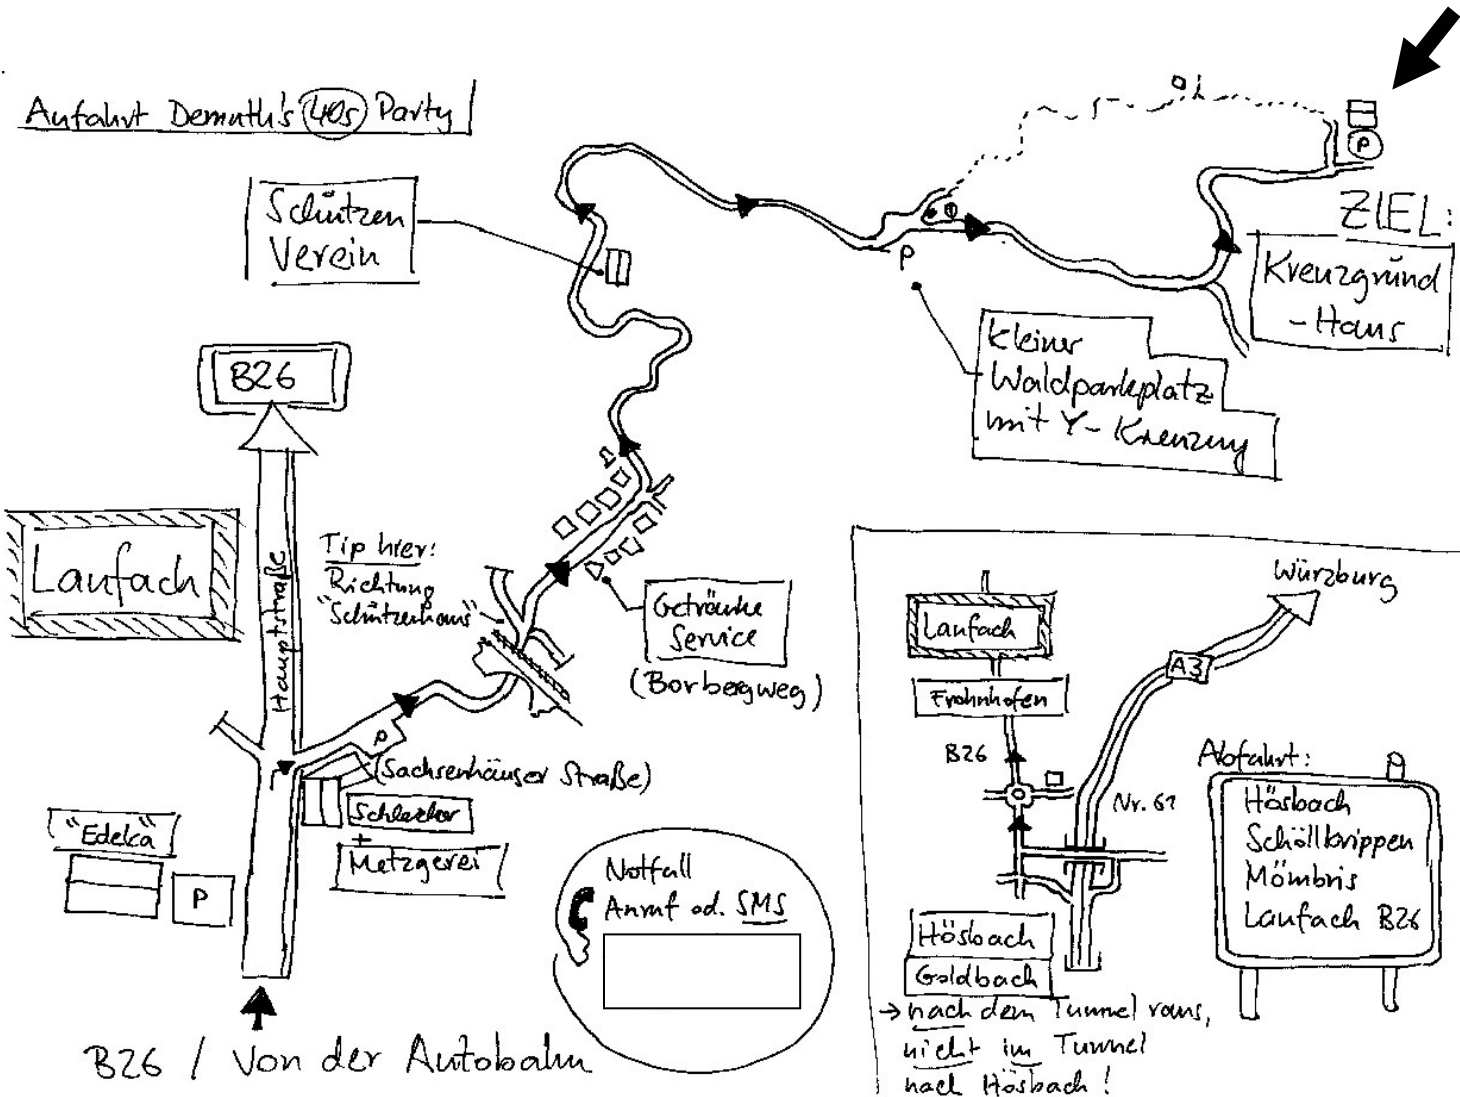 Anfahrt Demuth's 40s Party
Schützen
Verein
P
ZIEL:
Kreuzgrund
-Haus
P
Kleiner
Waldparkplatz
mit Y-Kreuzung
B26
Laufach
Hauptstraße
Tip hier:
Richtung
"Schützenhaus"
Getränke
Service
(Borbergweg)
P
(Sachsenhäuser Straße)
Schlecker
+
Metzgerei
"Edeka"
P
B26 / Von der Autobahn
Notfall
Anruf od. SMS
Würzburg
Laufach
A3
Frohnhofen
B26
Nr. 61
Abfahrt:
Hösbach
Schöllkrippen
Mömbris
Laufach B26
Hösbach
Goldbach
→ nach dem Tunnel raus,
nicht im Tunnel
nach Hösbach!